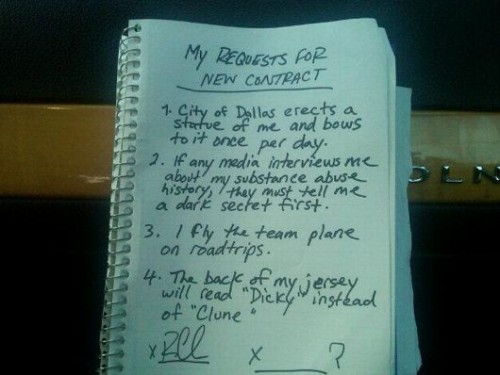 My REQUESTS FOR
NEW CONTRACT
1. City of Dallas erects a
statue of me and bows
to it once per day.
2. If any media interviews me
about my substance abuse
history, they must tell me
a dark secret first.
3. I fly the team plane
on roadtrips.
4. The back of my jersey
will read "Dicky" instead
of "Clune"
x RCl x ?
OLN